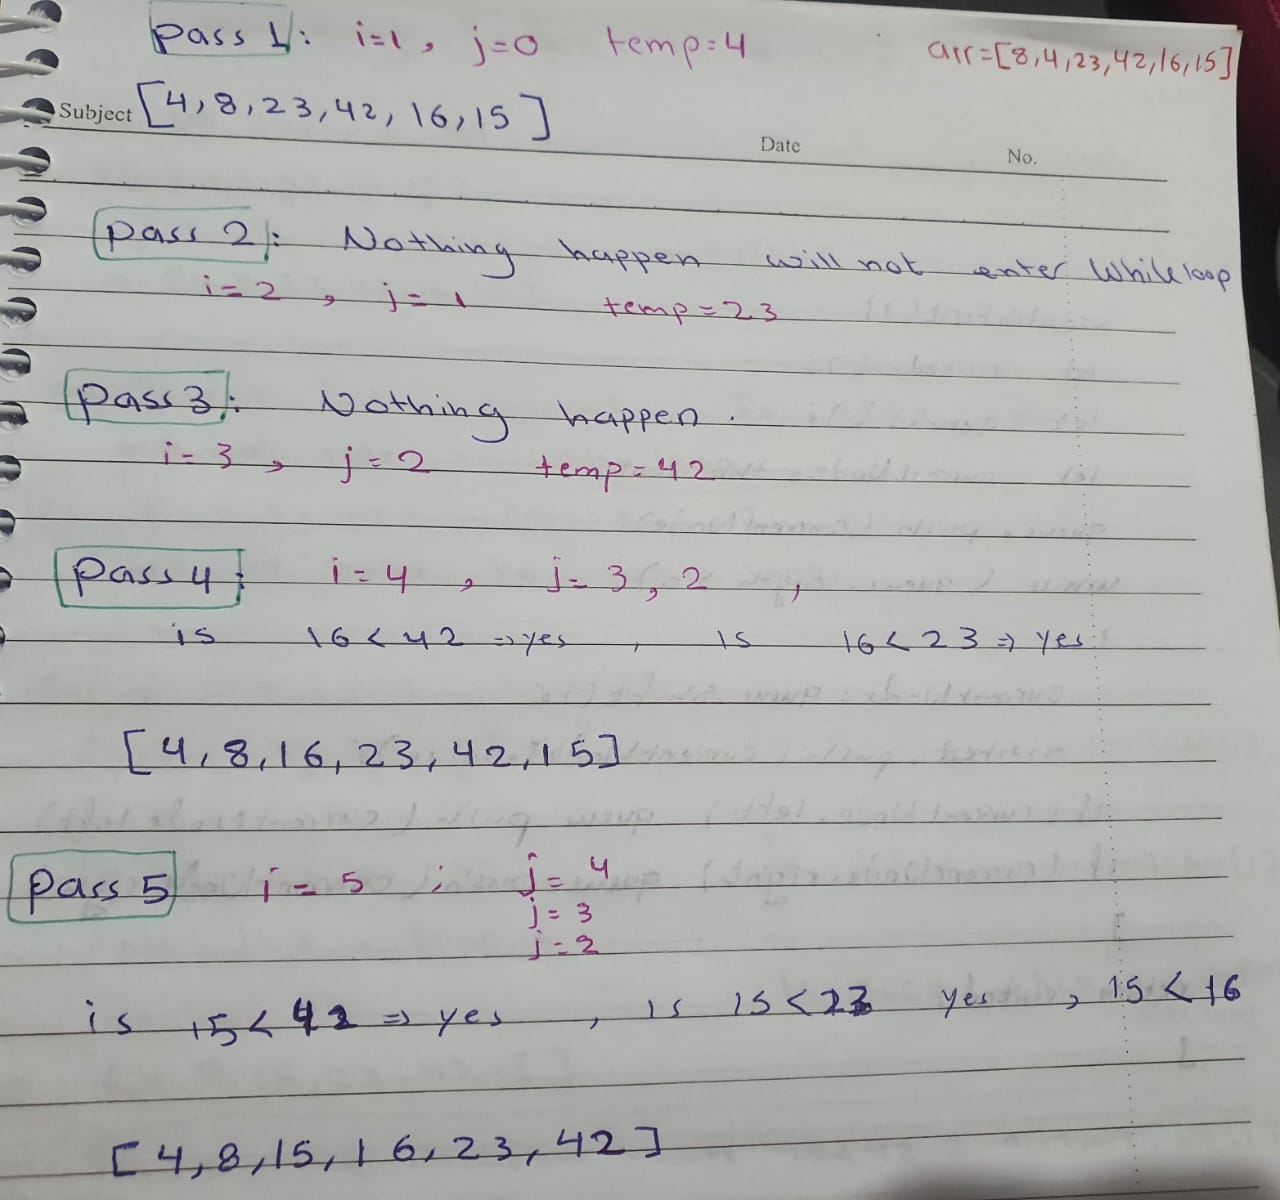 Pass 1: i=1, j=0 temp=4 arr=[8,4,23,42,16,15]
Subject [4,8,23,42,16,15]
Date No.
Pass 2: Nothing happen will not enter while loop
i=2, j=1 temp=23
Pass 3: Nothing happen.
i=3, j=2 temp=42
Pass 4: i=4, j=3, 2,
is 16<42 => yes, is 16<23 => yes
[4,8,16,23,42,15]
Pass 5 i=5; j=4
j=3
j=2
is 15<42 => yes, is 15<23 yes, 15<16
[4,8,15,16,23,42]